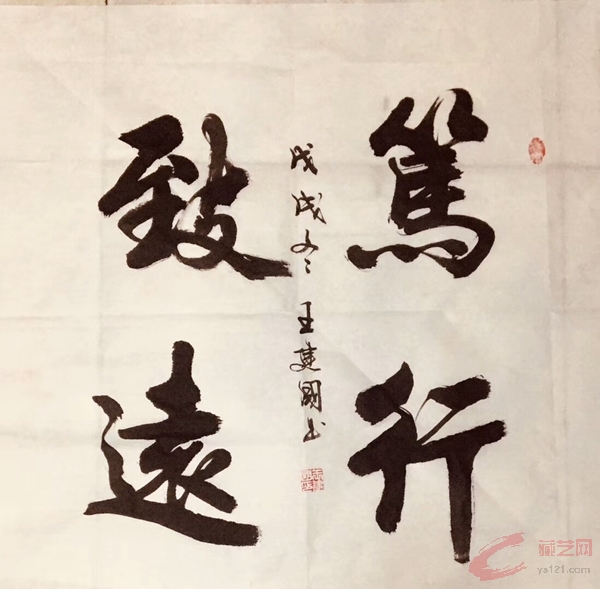 篤行
致遠
戊戌冬王建國書
藏艺网
ys121.com